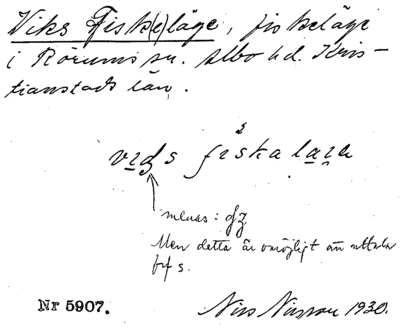 Viks Fisk(e)läge, fiskeläge
i Rörums sn. Albo hd. Kris-
tianstads län.
vɪgs fɪskalaɪɐ
s
menas: gʒ
Men detta är omöjligt att uttala
före s.
Nr 5907.
Nils Nilsson 1930.